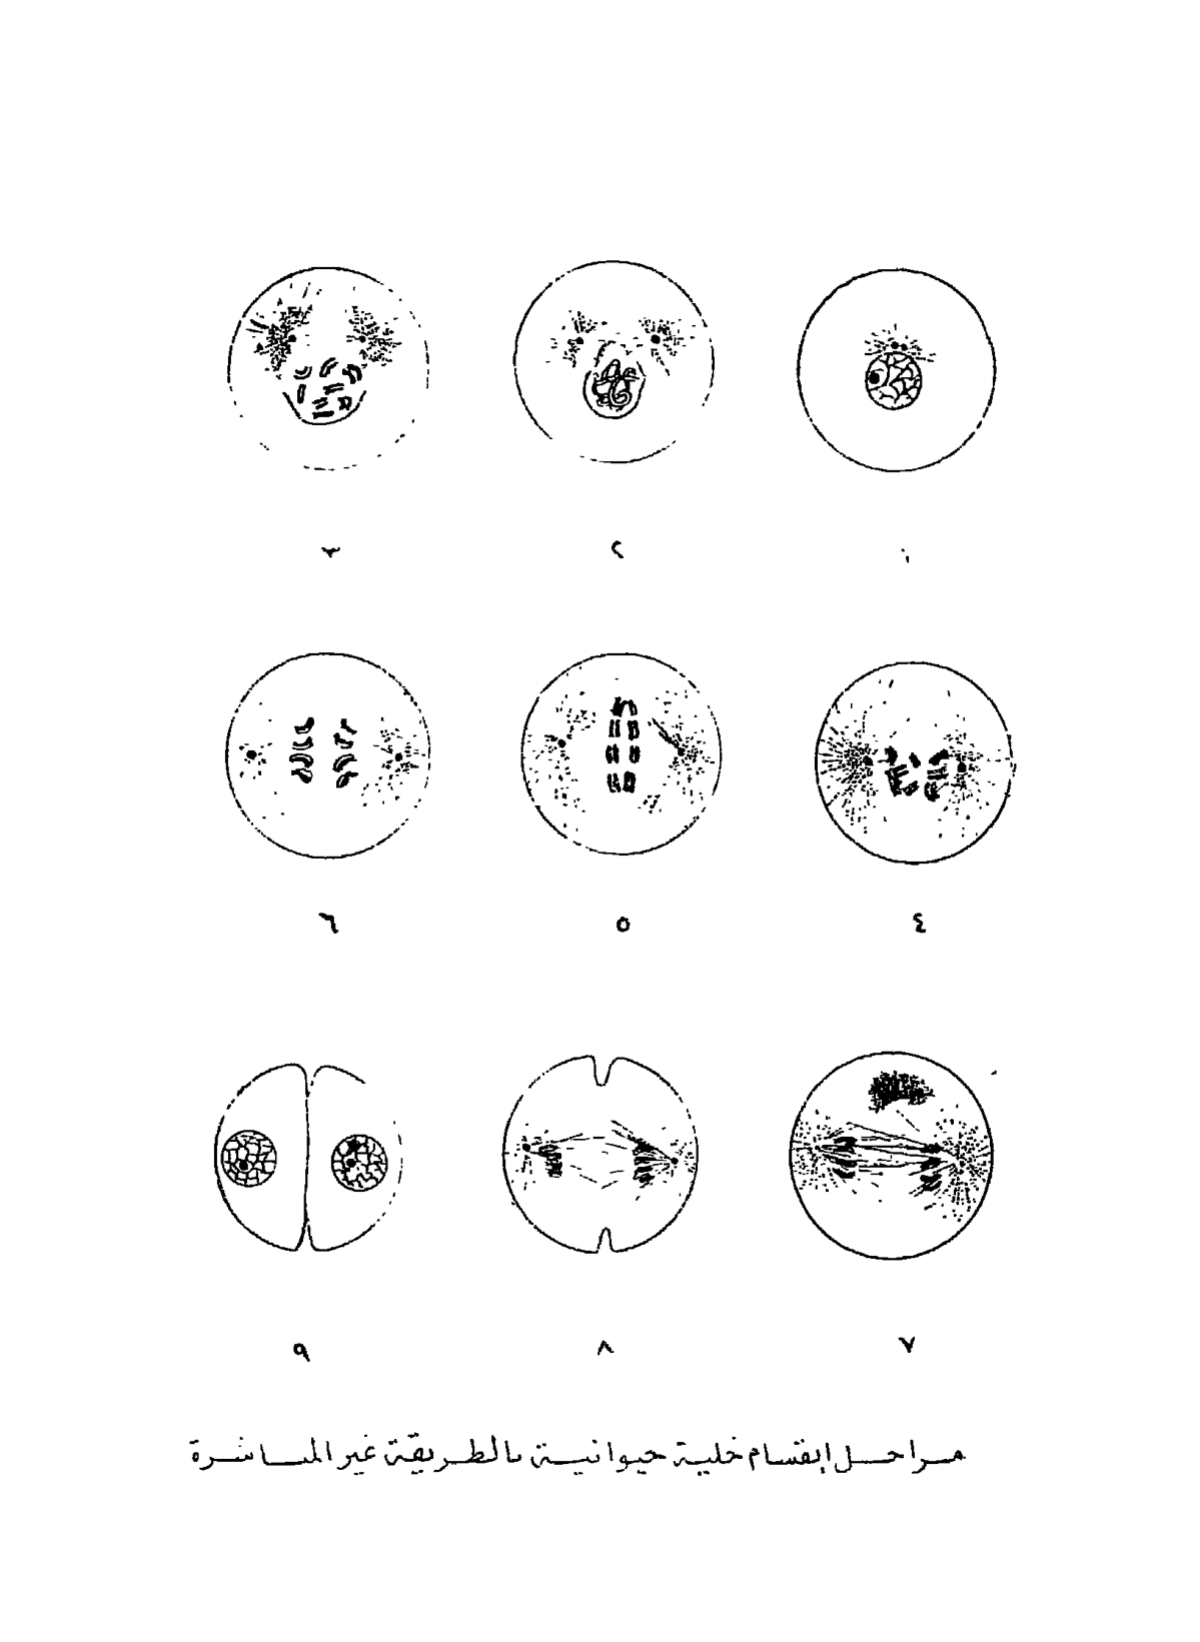 ١ ٢ ٣
٤ ٥ ٦
٧ ٨ ٩
مراحل إنقسام خلية حيوانية بالطريقة غير المباشرة